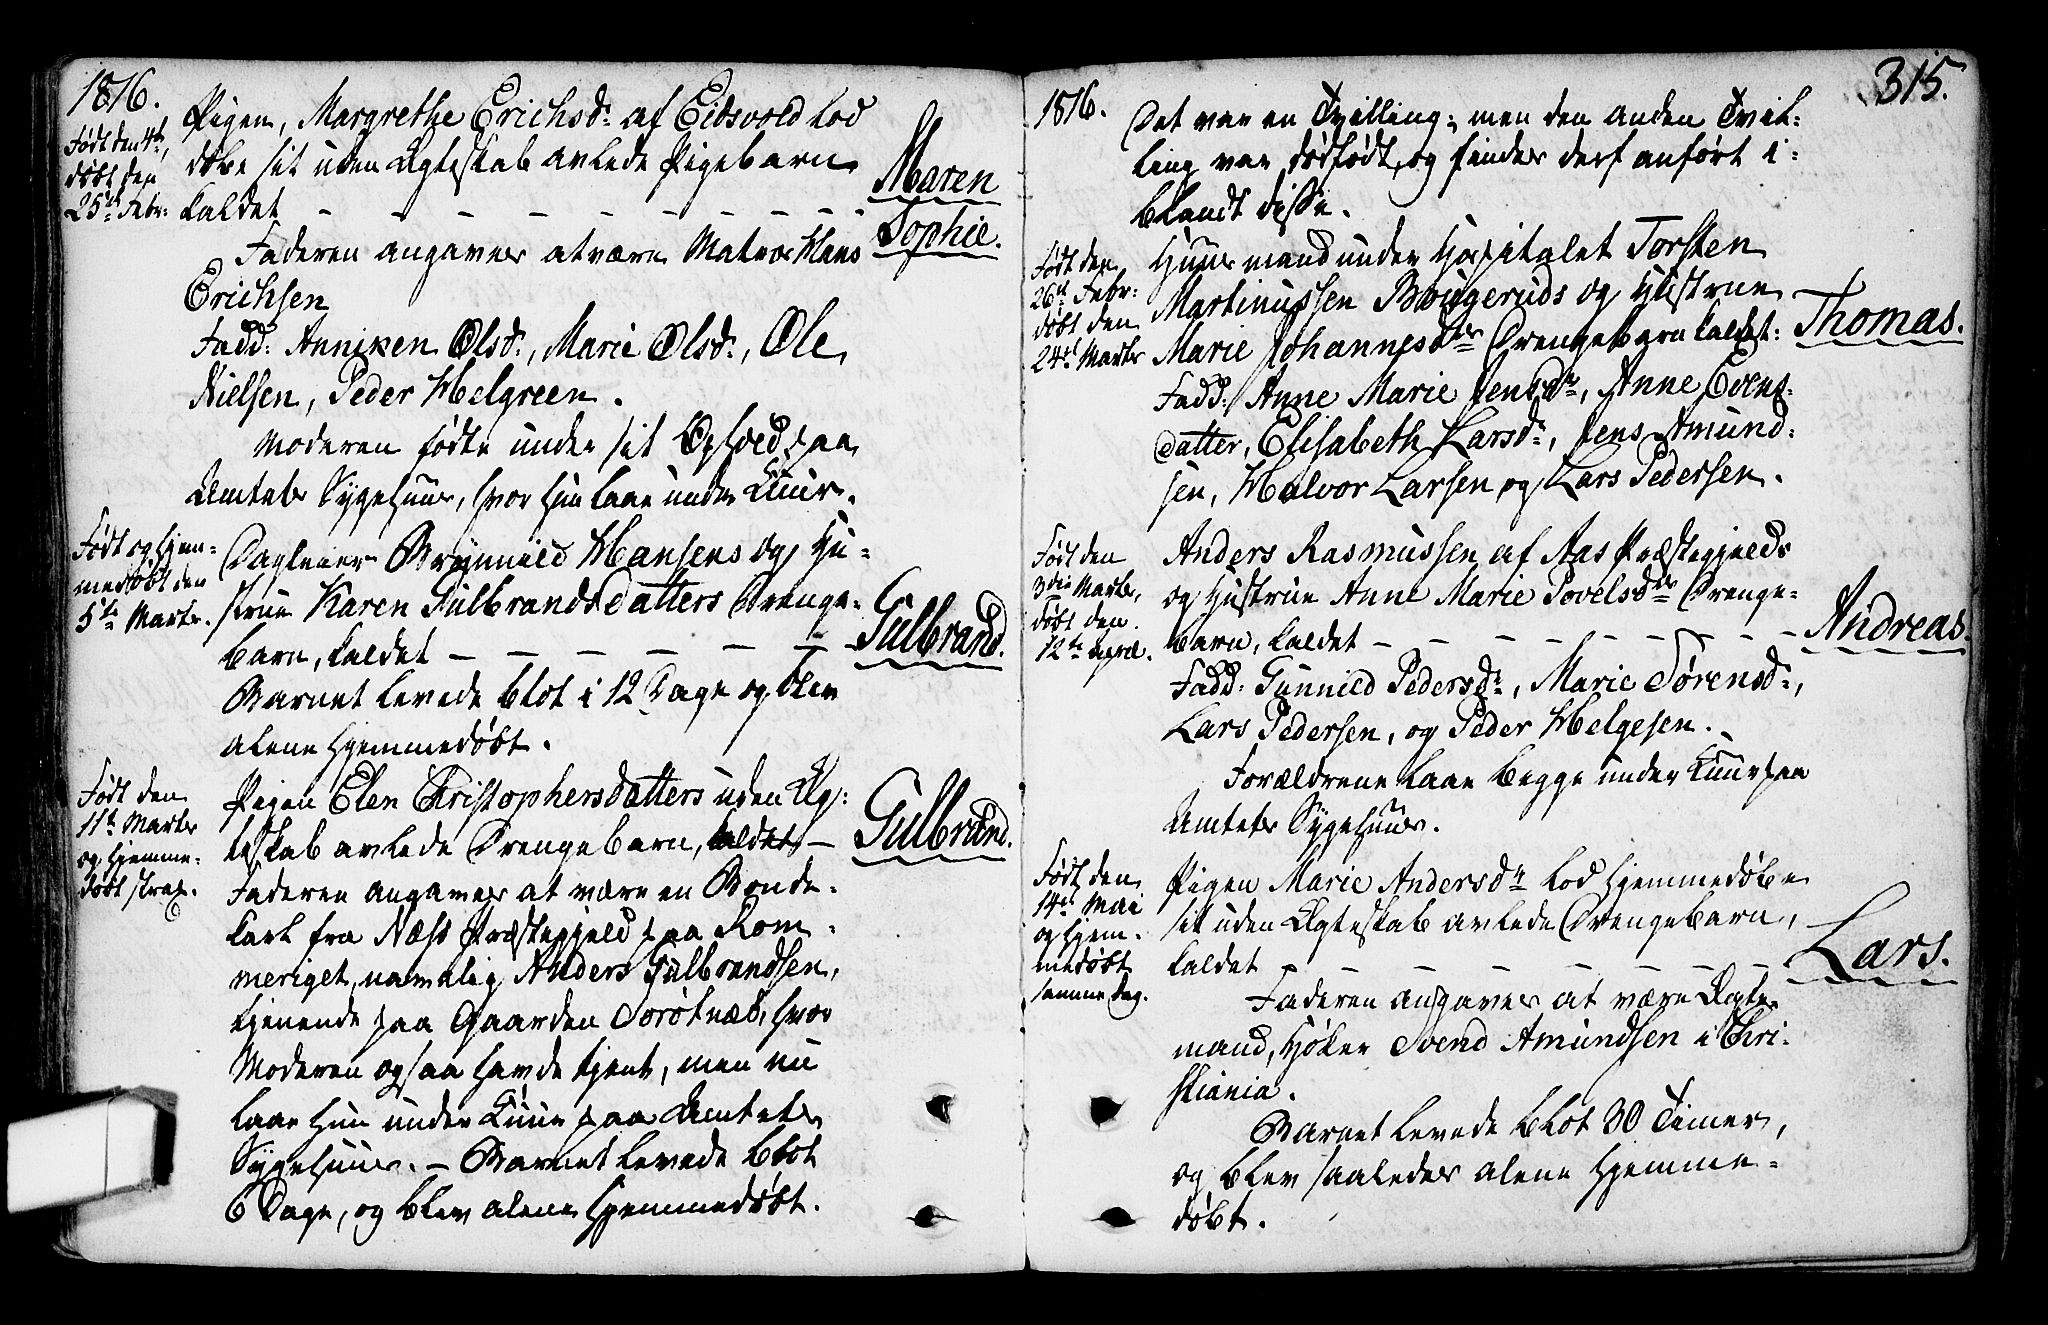 1816.
Født den 4de,
døbt den
25de Febr:
Pigen, Margrethe Erichsdr. af Eidsvold lod
døbe sit uden Ægteskab avlede Pigebarn
kaldet - - - - - - - - -
Maren
Sophie.
Faderen angaves at være Matros Hans
Erichsen
Fadd: Anniken Olsdr., Marie Olsdr., Ole
Nielsen, Peder Helgreen.
Moderen fødte under sit Ophold paa
Amtets Sygehuus, hvor hun laae under Kuur.
Født og hjem-
medøbt den
5te Marts.
Dagleier Brynnild Hansens og Hu-
strue Karen Gulbrandsdatters Drenge-
barn, kaldet - - - - - -
Gulbrand.
Barnet levede blot i 12 Dage og blev
alene hjemmedøbt.
Født den
11te Marts
og hjemme-
døbt strax.
Pigen Elen Christophersdatters uden Æg-
teskab avlede Drengebarn, kaldet -
Gulbrand.
Faderen angaves at være en Bonde-
karl fra Næss Præstegjeld paa Rom-
meriget, navnlig Anders Gulbrandsen,
tjenende paa Gaarden hvor
Moderen ogsaa havde tjent, men nu
laae hun under Kuur paa Amtets
Sygehuus. - Barnet levede blot
6 Dage, og blev alene hjemmedøbt.
315.
1816.
Det var en Tvilling; men den anden Tvil-
ling var dødfødt, og findes derf anført i-
blandt disse.
Født den
26de Febr:
døbt den
24de Marts
Huusmand under Hospitalet Torsten
Martinussen Bougeruds og Hustrue
Marie Johannesdtrs Drengebarn kaldet:
Thomas.
Fadd: Anne Marie Jensdr., Anne Evens-
datter, Elisabeth Larsdr., Jens Amund-
sen, Halvor Larsen og Lars Pedersen.
Født den
3die Marts,
døbt den
12te April.
Anders Rasmussen af Aas Præstegjelds
og Hustrue Anne Marie Povelsdtrs Drenge-
barn, kaldet - - - - - - - -
Andreas.
Fadd: Gunnild Pedersdr., Marie Sørensdr.,
Lars Pedersen, og Peder Helgesen.
Forældrene laae begge under Kuur paa
Amtets Sygehuus.
Født den
14de Mai
og hjem-
medøbt
samme Dag.
Pigen Marie Andersdr. lod hjemmedøbe
sit uden Ægteskab avlede Drengebarn,
kaldet - - - - - - - -
Lars.
Faderen angaves at være Ægte-
mand, Høker Svend Amundsen i Chri-
stiania.
Barnet levede blot 30 Timer,
og blev saaledes alene hjemme-
døbt.